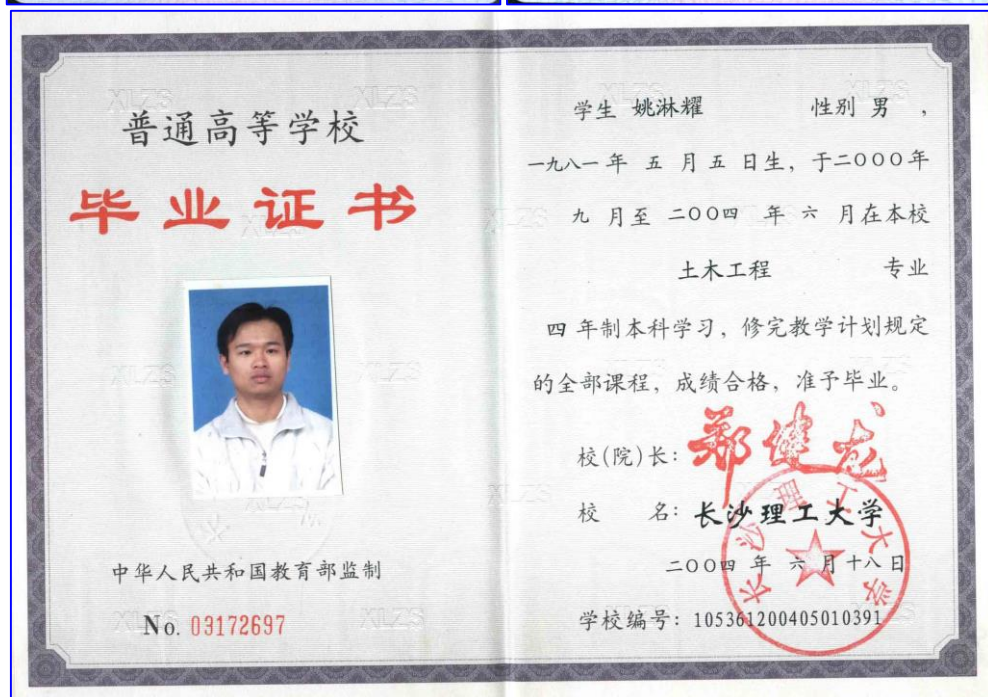 普通高等学校
毕业证书
中华人民共和国教育部监制
No. 03172697
学生 姚淋耀 性别 男 ，
一九八一 年 五 月 五 日生，于二〇〇〇年
九 月至 二〇〇四 年 六 月在本校
土木工程 专业
四 年制本科学习，修完教学计划规定
的全部课程，成绩合格，准予毕业。
校(院)长：郑健龙
校 名：长沙理工大学
二〇〇四 年 六 月十八日
学校编号：105361200405010391
长沙理工大学
XLZS